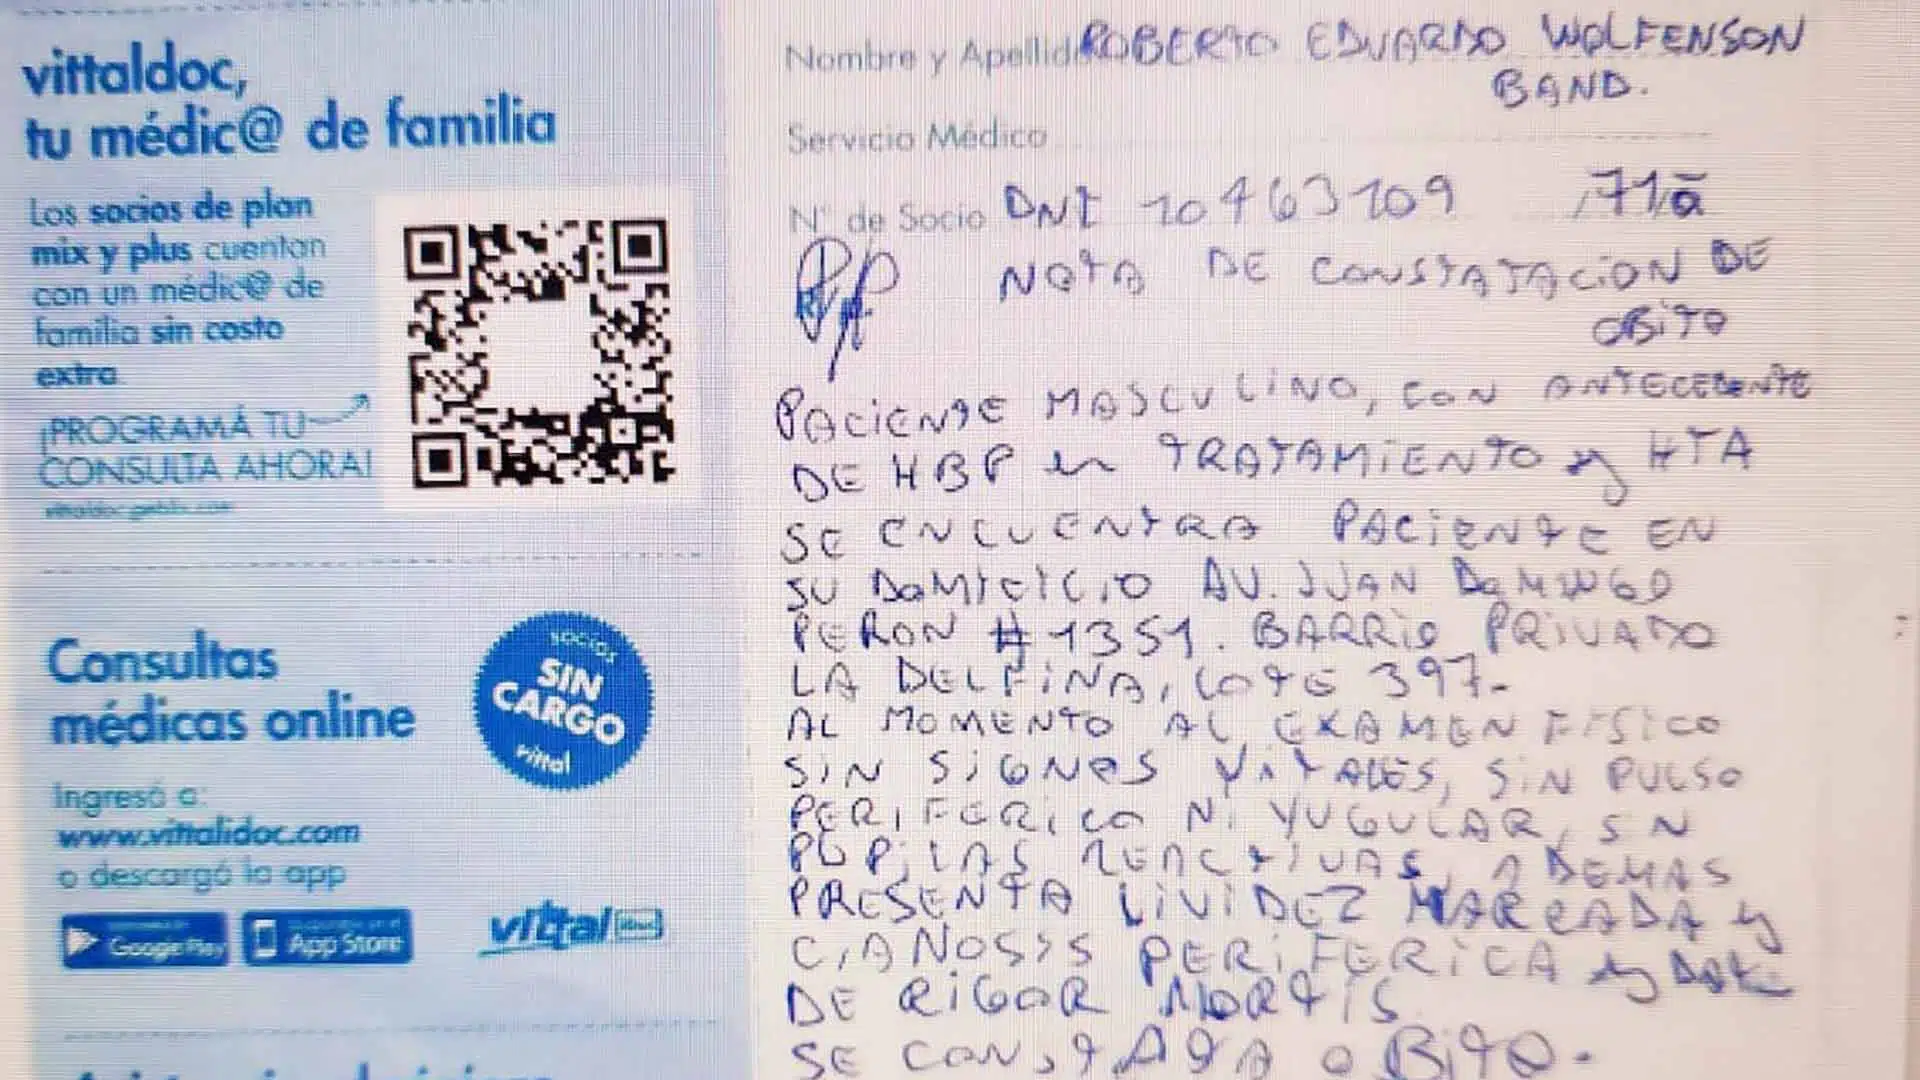 vittaldoc,
tu médic@ de familia
Los socios de plan
mix y plus cuentan
con un médic@ de
familia sin costo
extra.
¡PROGRAMÁ TU
CONSULTA AHORA!
Consultas
médicas online
SOCIOS
SIN
CARGO
vittal
Ingresá a:
www.vittalidoc.com
o descargá la app
Google Play
App Store
vittal
Nombre y Apellido ROBERTO EDUARDO WOLFENSON
BAND.
Servicio Médico
N° de Socio DNI 10463109 71ã
NOTA DE CONSTATACION DE
OBITO
PACIENTE MASCULINO, CON ANTECEDENTE
DE HBP en TRATAMIENTO y HTA
SE ENCUENTRA PACIENTE EN
SU DOMICILIO AV. JUAN DOMINGO
PERON # 1351. BARRIO PRIVADO
LA DELFINA, LOTE 397-
AL MOMENTO AL EXAMEN FISICO
SIN SIGNOS VITALES, SIN PULSO
PERIFERICO NI YUGULAR, SIN
PUPILAS REACTIVAS, ADEMAS
PRESENTA LIVIDEZ MARCADA y
CIANOSIS PERIFERICA y
DE RIGOR MORTIS
SE CONSTATA OBITO.